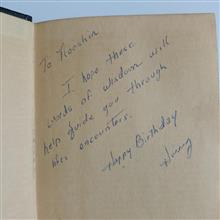 To
I hope these
words of wisdom will
help guide you through
lifes encounters.
Happy Birthday